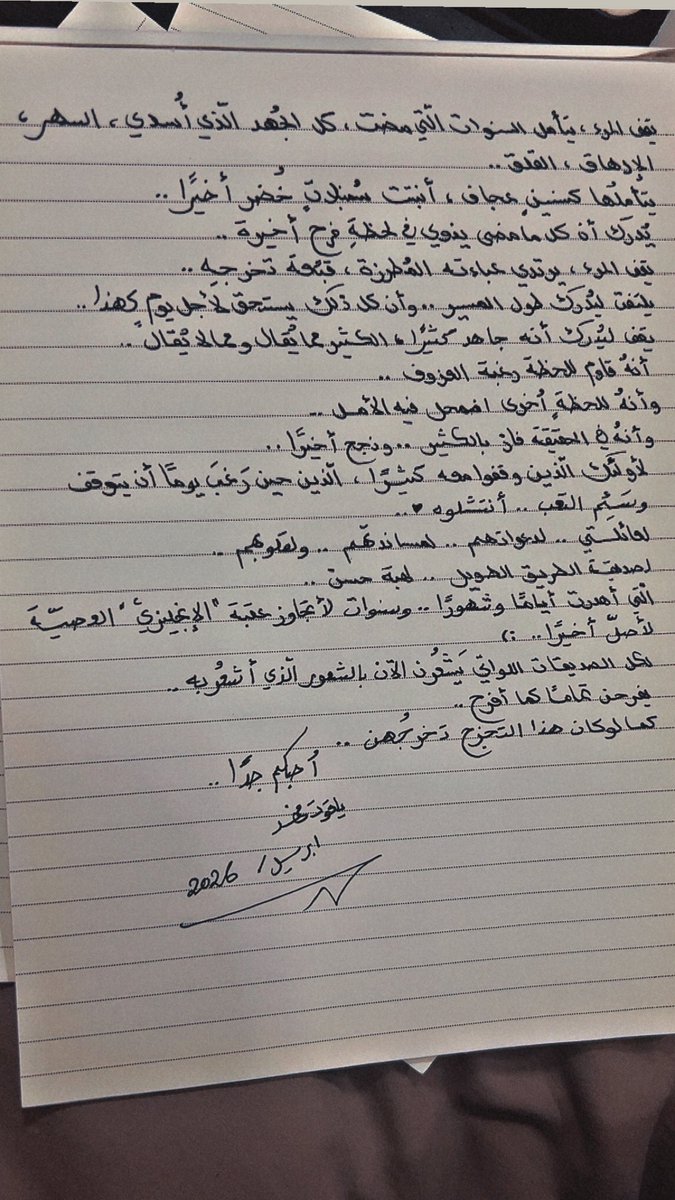 يقف المرء ، يتأمل السنوات الّتي مضت ، كل الجُهد الّذي أُسدي ، السهر ،
الإرهاق ، القلق ..
يتأملها كسنينٍ عجاف ، أنبتت سُنبلاتٍ خُضر أخيرًا ..
يُدرك أن كل ما مضى ينوي في لحظةِ فرح أخيرة ..
يقف المرء ، يرتدي عباءته المُطرزة ، قبّعة تخرجهِ ..
يلتفت ليُدرك طول المسير .. وأن كل ذلك يستحق لأجل يوم كهذا ..
يقف ليُدرك أنه جاهد كثيرًا ، الكثير مما يُقال ومما لا يُقال ..
أنهُ قاوم للحظة رغبة العزوف ..
وأنهُ للحظةٍ أخرى اضمحل فيه الأمل ..
وأنهُ في الحقيقة فاز بالكثير .. ونجح أخيرًا ..
لأولئك الّذين وقفوا معه كثيرًا ، الّذين حين رَغبَ يومًا أن يتوقف
وسَئِم التعب .. أنتشلوه ♥ ..
لعائلتي .. لدعواتهم .. لمساندتهم .. ولقلوبهم ..
لصديقة الطريق الطويل .. لهبة حسن ..
الّتي أهدرت أيامًا وشهورًا .. وسنوات لأتجاوز عتبة "الإنجليزي" العصيّة
لأصلَ أخيرًا .. :)
لكل الصديقات اللواتي يَشعُرن الآن بالشعور الّذي أشعُر به ..
يفرحن تمامًا كما أفرح ..
كما لو كان هذا التخرج تخرجُهن ..
أحبكم جدًا ..
ابريل / 2026